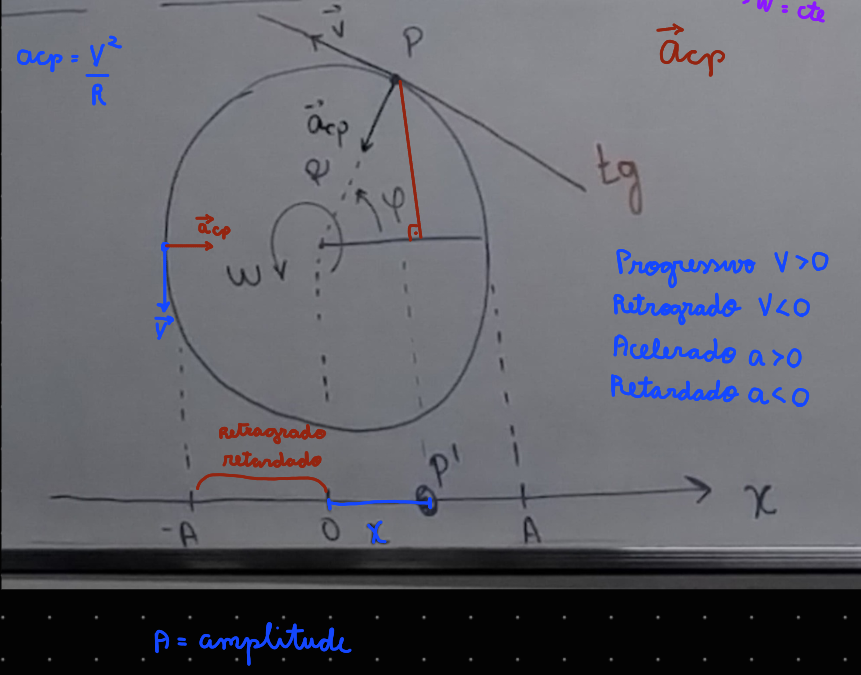 W = cte
V
P
acp = V²/R
acp
acp
R
φ
tg
acp
W
V
Progressivo V>0
Retrogrado V<0
Acelerado a>0
Retardado a<0
Retragrado
retardado
P'
X
-A
0
x
A
A = amplitude